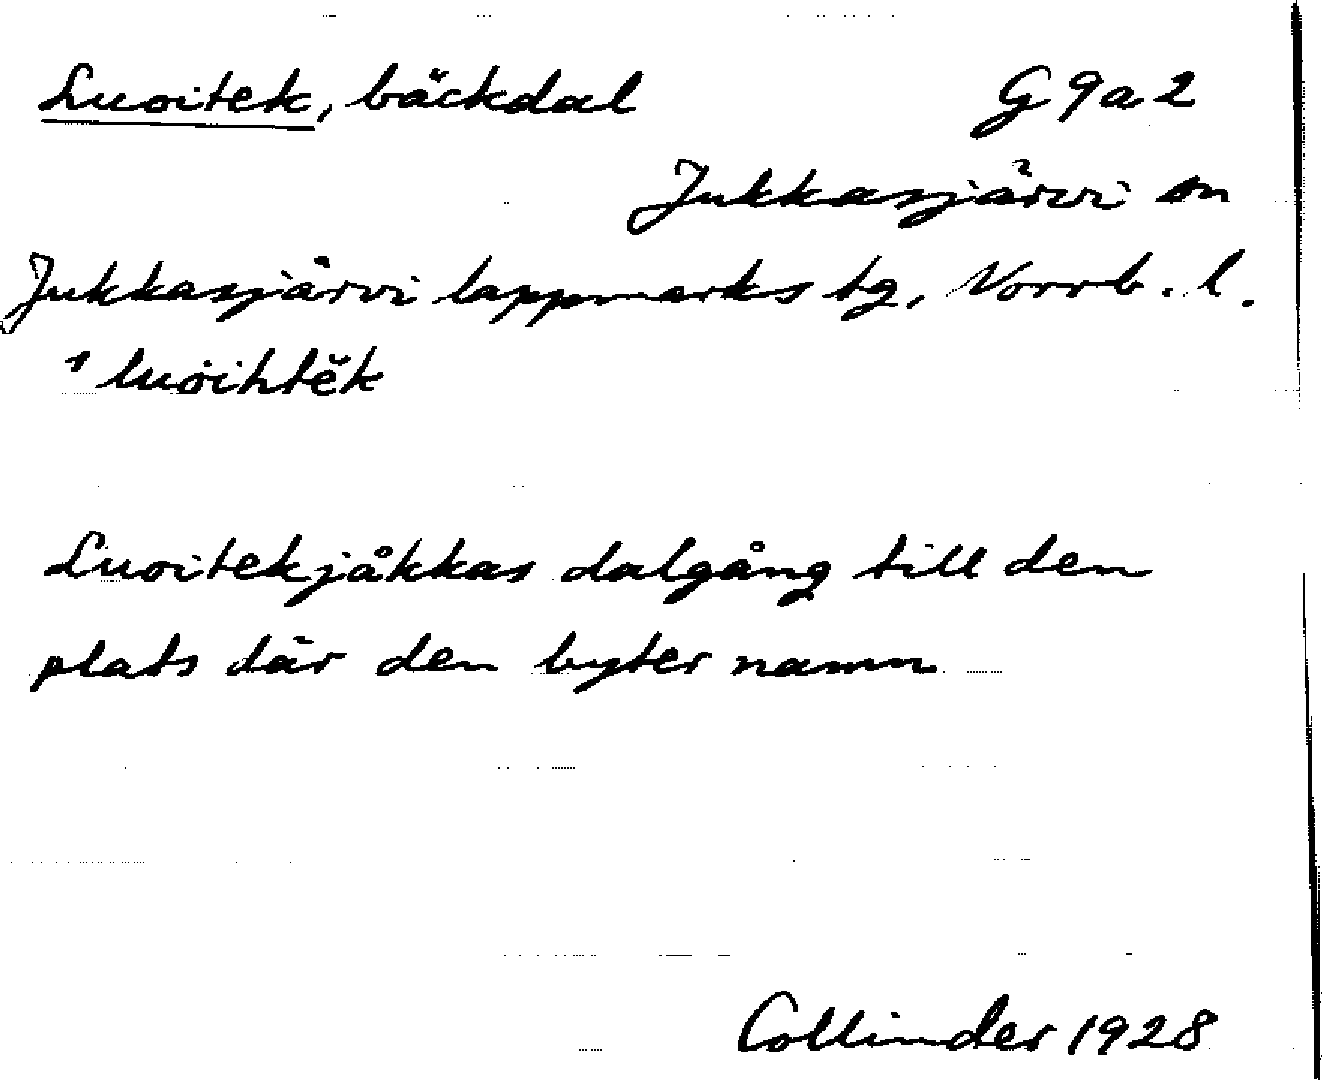 Luoitek, bäckdal G9a2
Jukkasjärvi sn
Jukkasjärvi lappmarks tg, Norrb. l.
luȯihtĕk
Luoitekjåkkas dalgång till den
plats där den byter namn
Collinder 1928